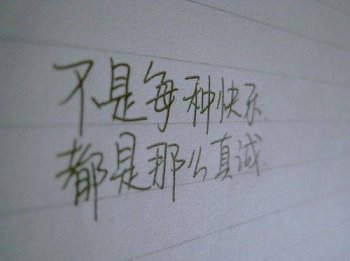 不是每种快乐
都是那么真诚